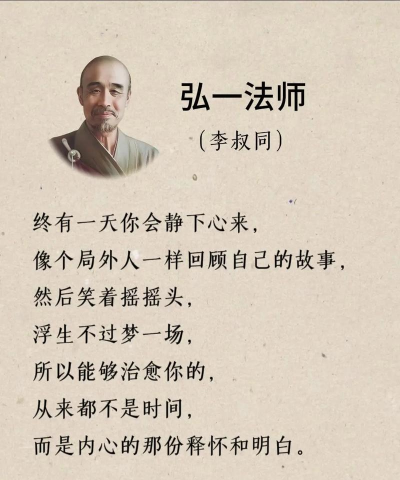 弘一法师
（李叔同）
终有一天你会静下心来，
像个局外人一样回顾自己的故事，
然后笑着摇摇头，
浮生不过梦一场，
所以能够治愈你的，
从来都不是时间，
而是内心的那份释怀和明白。